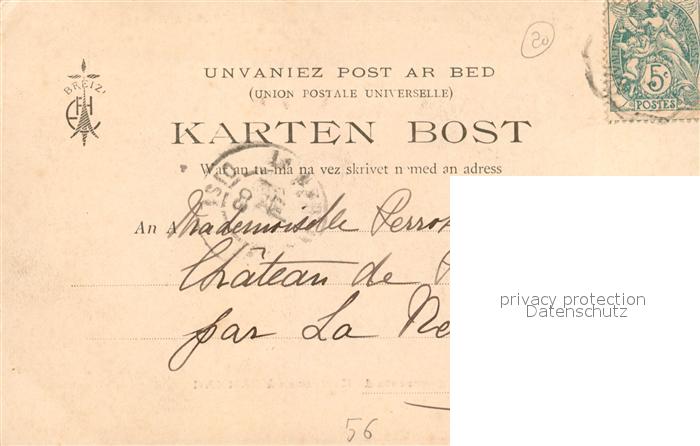 20
5c
POSTES
BREIZ
UNVANIEZ POST AR BED
(UNION POSTALE UNIVERSELLE)
KARTEN BOST
War an tu-ma na vez skrivet nemed an adress
An A
Mademoiselle
Château de
par La
privacy protection
Datenschutz
56